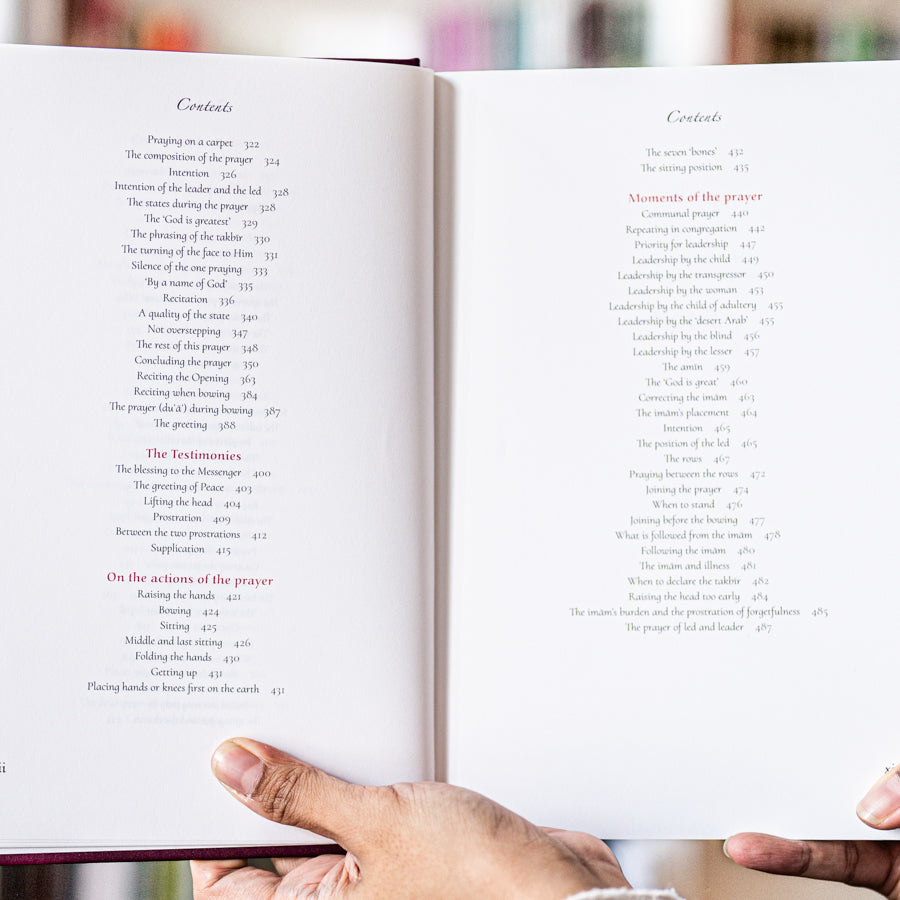 Contents
Praying on a carpet 322
The composition of the prayer 324
Intention 326
Intention of the leader and the led 328
The states during the prayer 328
The ‘God is greatest’ 329
The phrasing of the takbīr 330
The turning of the face to Him 331
Silence of the one praying 333
‘By a name of God’ 335
Recitation 336
A quality of the state 340
Not overstepping 347
The rest of this prayer 348
Concluding the prayer 350
Reciting the Opening 363
Reciting when bowing 384
The prayer (duʿāʾ) during bowing 387
The greeting 388
The Testimonies
The blessing to the Messenger 400
The greeting of Peace 403
Lifting the head 404
Prostration 409
Between the two prostrations 412
Supplication 415
On the actions of the prayer
Raising the hands 421
Bowing 424
Sitting 425
Middle and last sitting 426
Folding the hands 430
Getting up 431
Placing hands or knees first on the earth 431
Contents
The seven ‘bones’ 432
The sitting position 435
Moments of the prayer
Communal prayer 440
Repeating in congregation 442
Priority for leadership 447
Leadership by the child 449
Leadership by the transgressor 450
Leadership by the woman 453
Leadership by the child of adultery 455
Leadership by the ‘desert Arab’ 455
Leadership by the blind 456
Leadership by the lesser 457
The amīn 459
The ‘God is great’ 460
Correcting the imām 463
The imām’s placement 464
Intention 465
The position of the led 465
The rows 467
Praying between the rows 472
Joining the prayer 474
When to stand 476
Joining before the bowing 477
What is followed from the imām 478
Following the imām 480
The imām and illness 481
When to declare the takbīr 482
Raising the head too early 484
The imām’s burden and the prostration of forgetfulness 485
The prayer of led and leader 487